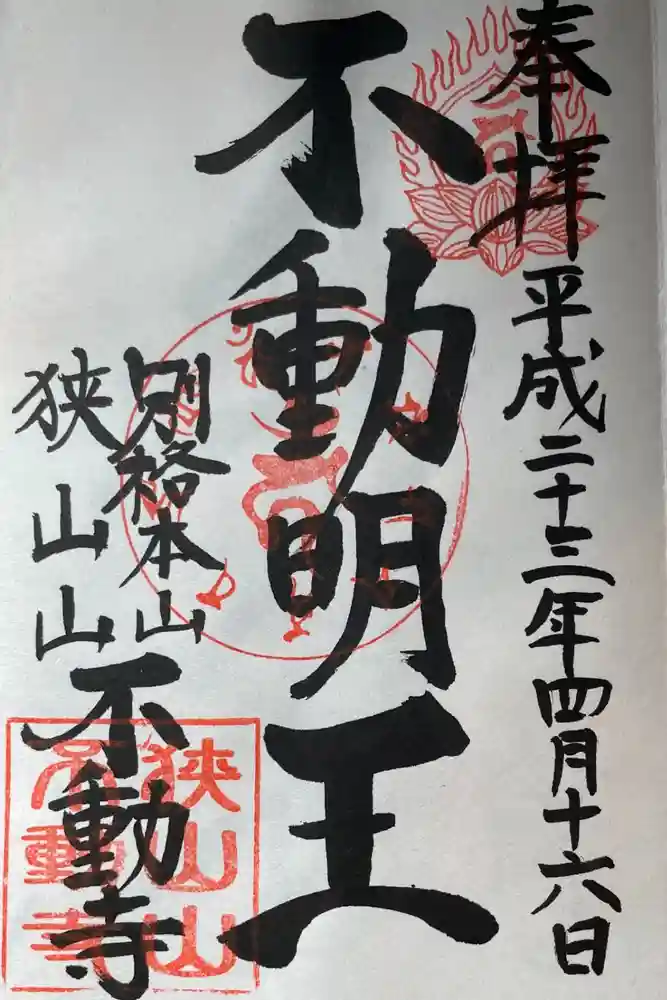 奉拝
平成二十三年四月十六日
不動明王
別格本山
狭山山
不動寺
狭山山
不動寺